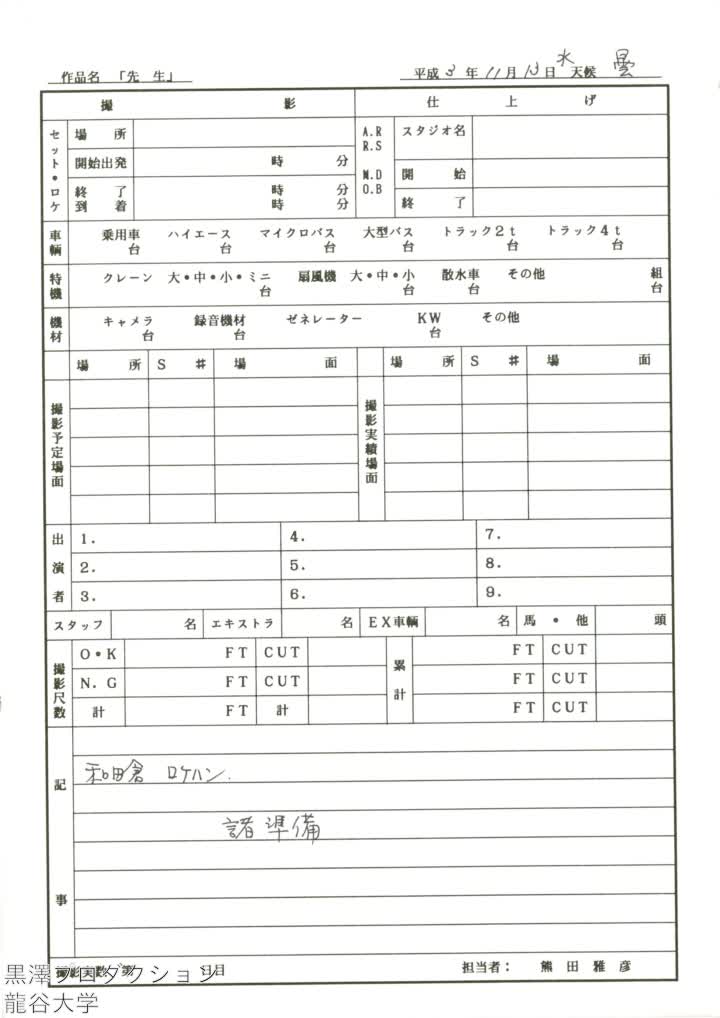 作品名 「先 生」 平成 3 年 11月 13日 水 天候 曇
撮 影 仕 上 げ
セット・ロケ 場 所
開始出発 時 分
終 了 時 分
到 着 時 分
A.R
R.S
M.D
O.B
スタジオ名
開 始
終 了
車輌 乗用車 ハイエース マイクロバス 大型バス トラック2t トラック4t
台 台 台 台 台 台
特機 クレーン 大・中・小・ミニ 扇風機 大・中・小 散水車 その他 組
台 台 台 台
機材 キャメラ 録音機材 ゼネレーター KW その他
台 台 台
場 所 S # 場 面 場 所 S # 場 面
撮影予定場面
撮影実績場面
出演者 1. 4. 7.
2. 5. 8.
3. 6. 9.
スタッフ 名 エキストラ 名 EX車輌 名 馬・他 頭
撮影尺数 O・K FT CUT 累計 FT CUT
N.G FT CUT FT CUT
計 FT 計 FT CUT
記事
和田倉 ロケハン.
諸準備
撮影実数 第 日目 担当者: 熊 田 雅 彦
黒澤プロダクション
龍谷大学